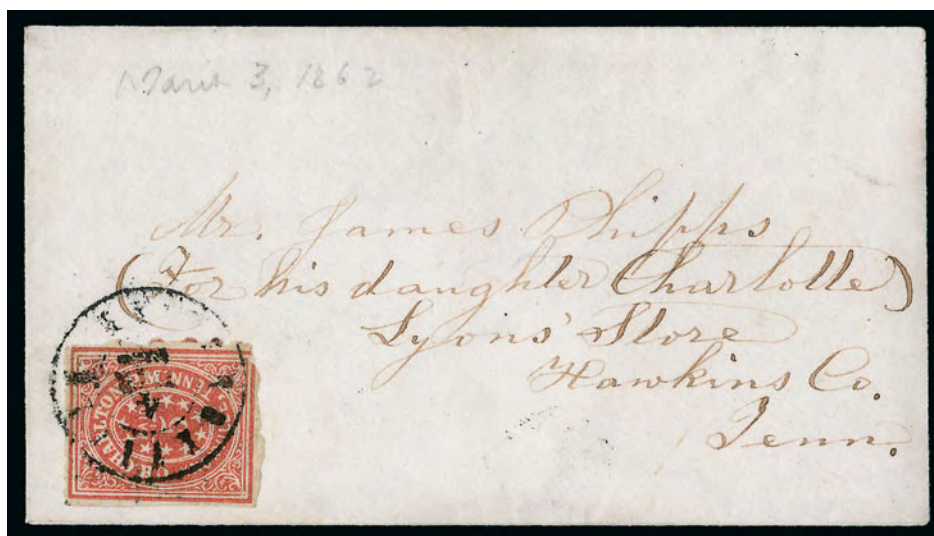 March 3, 1862
Mr. James Phipps
(For his daughter Charlotte)
Lyons' Store
Hawkins Co.
Tenn.
C.H. CHARLTON P.M. TENN.